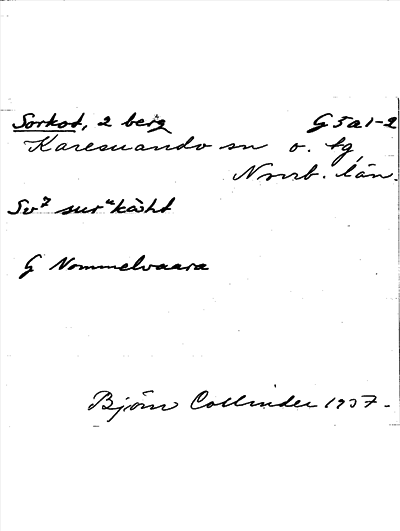 Sorkot, 2 berg G 5 a 1-2
Karesuando sn o. tg,
Norrb. län.
Sv⁷ sur"kåht
G Nommelvaara
Björn Collinder 1957.